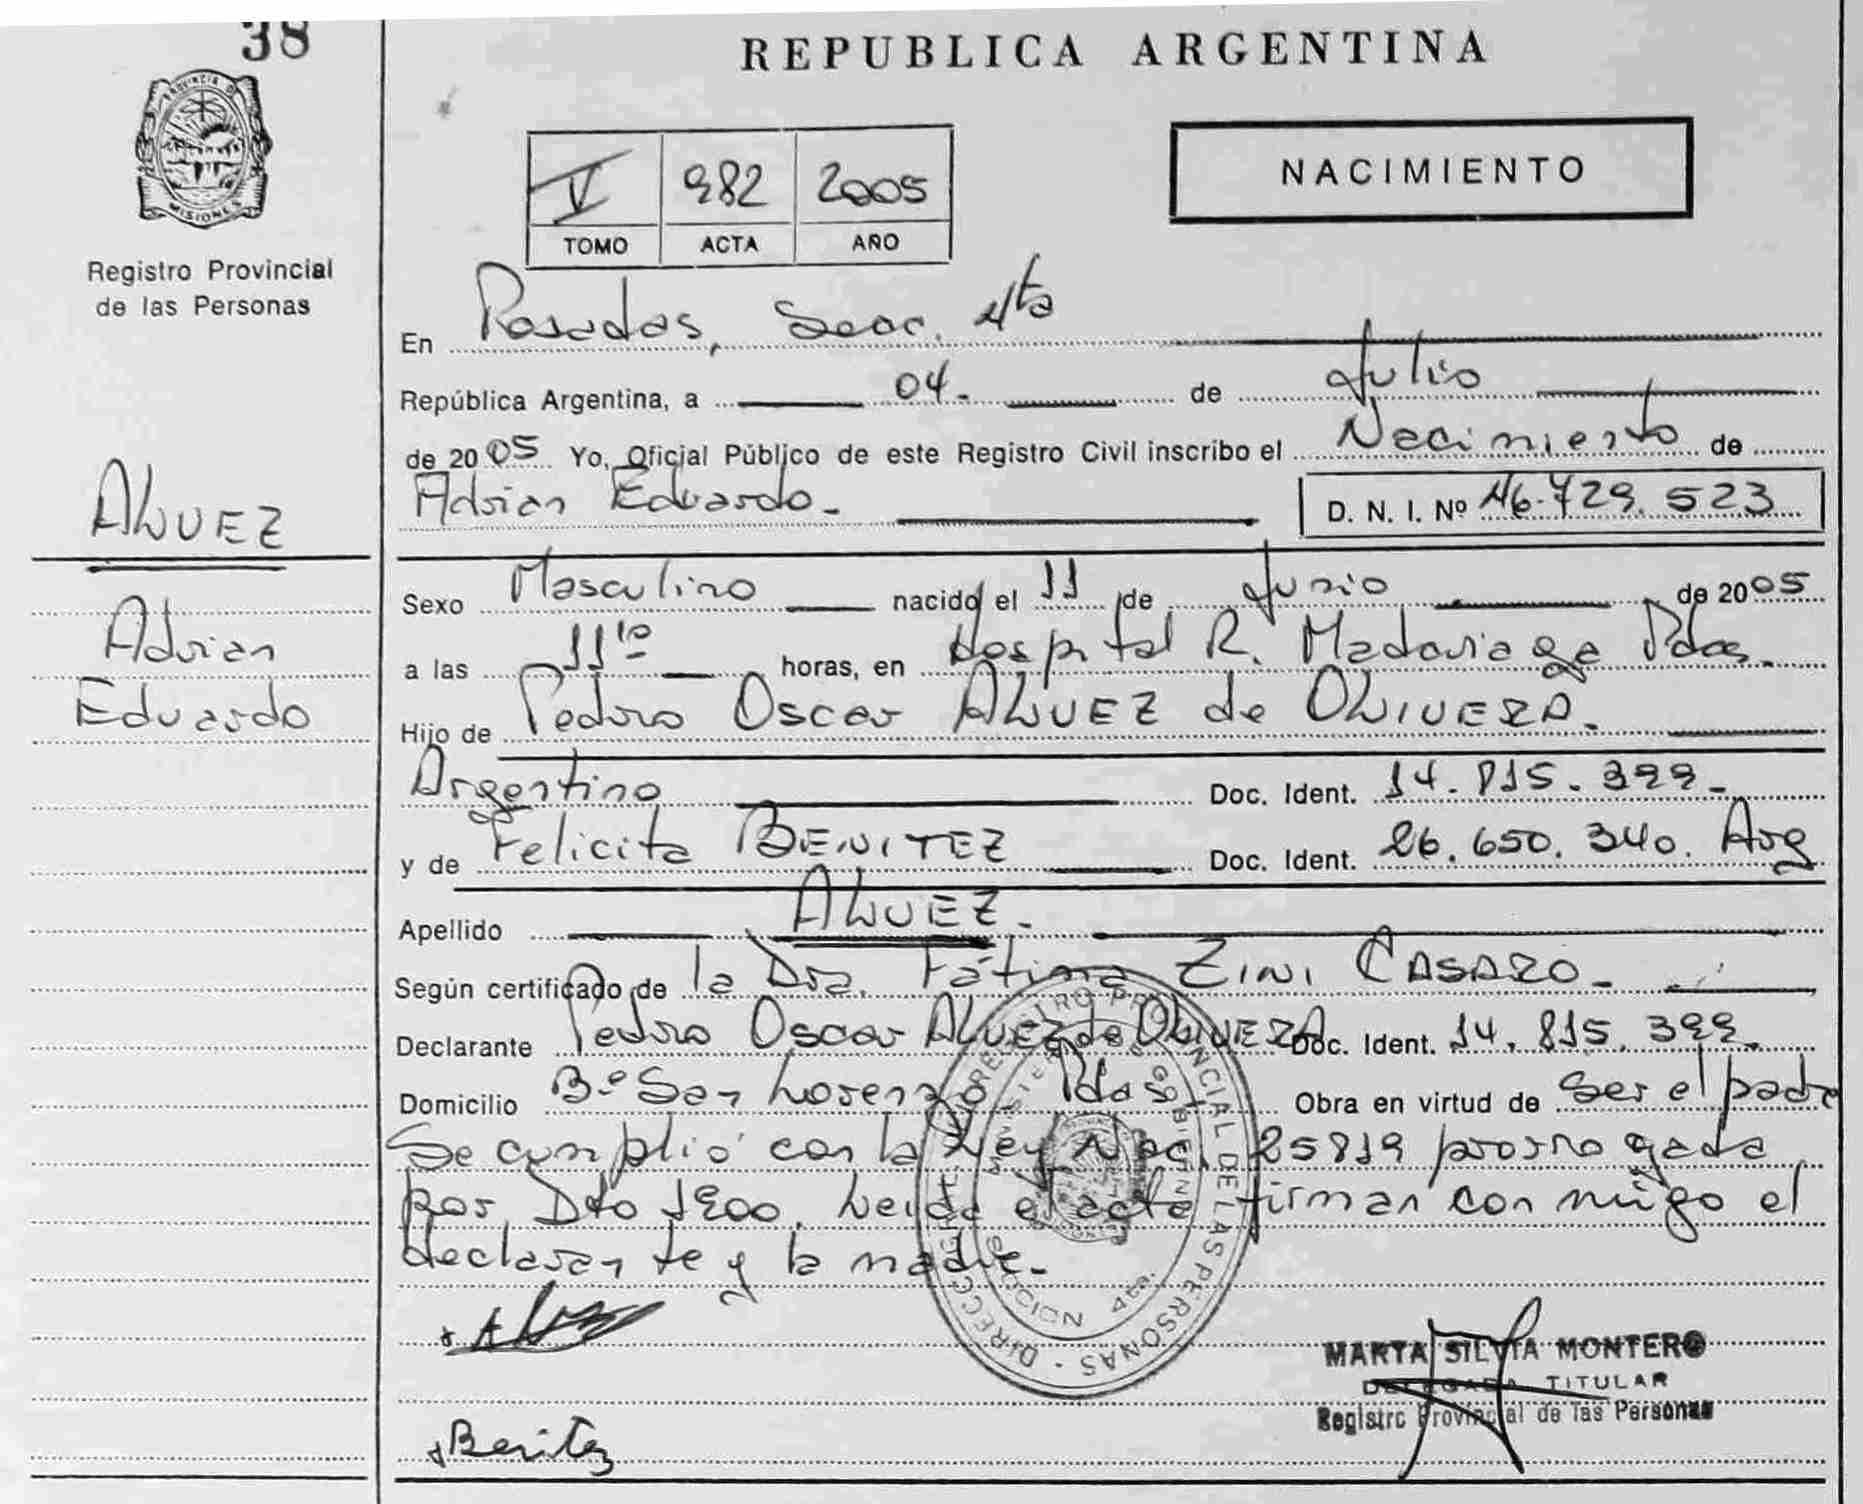 38
PROVINCIA DE
MISIONES
Registro Provincial
de las Personas
ALVEZ
Adrian
Eduardo
REPUBLICA ARGENTINA
V 982 2005
TOMO ACTA AÑO
NACIMIENTO
En Posadas, Secc. 4ta
República Argentina, a 04. de Julio
de 2005 Yo, Oficial Público de este Registro Civil inscribo el Nacimiento de
Adrian Eduardo. D. N. I. Nº 46.729.523
Sexo Masculino nacido el 11 de Junio de 2005
a las 11 10 horas, en Hospital R. Madariaga Pdas.
Hijo de Pedro Oscar ALVEZ de OLIVERA.
Argentino Doc. Ident. 14.815.399.
y de Felicita BENITEZ Doc. Ident. 26.650.340. Arg
Apellido ALVEZ.
Según certificado de la Dra. Fátima ZINI CASARO.
Declarante Pedro Oscar ALVEZ de OLIVERA Doc. Ident. 14.815.399.
Domicilio Bº San Lorenzo Pdas. Obra en virtud de ser el padre
Se cumplió con la Ley Nac. 25819 prorrogada
por Dto 1900. Leida el acta firman conmigo el
declarante y la madre.
REGISTRO PROVINCIAL DE LAS PERSONAS - DIRECCION GRAL.
MINISTERIO DE GOBIERNO
Alvez
Benitez
MARTA SILVIA MONTERO
DELEGADA TITULAR
Registro Provincial de las Personas